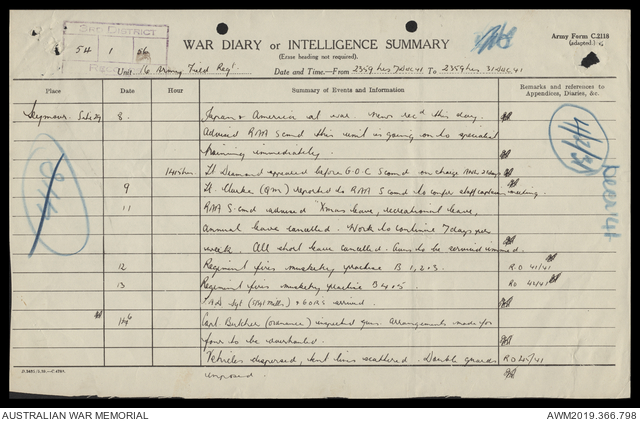 3RD DISTRICT
54 1 56
WAR DIARY or INTELLIGENCE SUMMARY
(Erase heading not required).
Army Form C.2118
(adapted.)
Unit 16 Army Field Regt
Date and Time—From 2359 hrs 7 Dec 41 To 2359 hrs 31 Dec 41
Place Date Hour Summary of Events and Information Remarks and references to Appendices, Diaries, &c.
Seymour 8. Japan & America at war. News recd this day.
Advised RAA S comd this unit is going on to specialist
training immediately.
1415 hrs Lt Desmond appeared before G.O.C S comd on charge
9 Lt. Clarke (QM) reported to RAA S comd to confer staff captain meeting.
11 RAA S. comd advised Xmas leave, recreational leave,
annual leave cancelled. Work to continue 7 days per
week. All short leave cancelled. Guns to be serviced immed.
12 Regiment fires musketry practice B 1, 2 & 3. RO 41/41
13 Regiment fires musketry practice B 4 & 5. RO 42/41
Sgt & 6 ORs arrived.
16 Capt Butcher (ordnance) inspected guns arrangements made for
four to be overhauled.
Vehicles dispersed, tent lines scattered. Double guards RO
imposed.
4/2/31
Dec 41
AUSTRALIAN WAR MEMORIAL
AWM2019.366.798